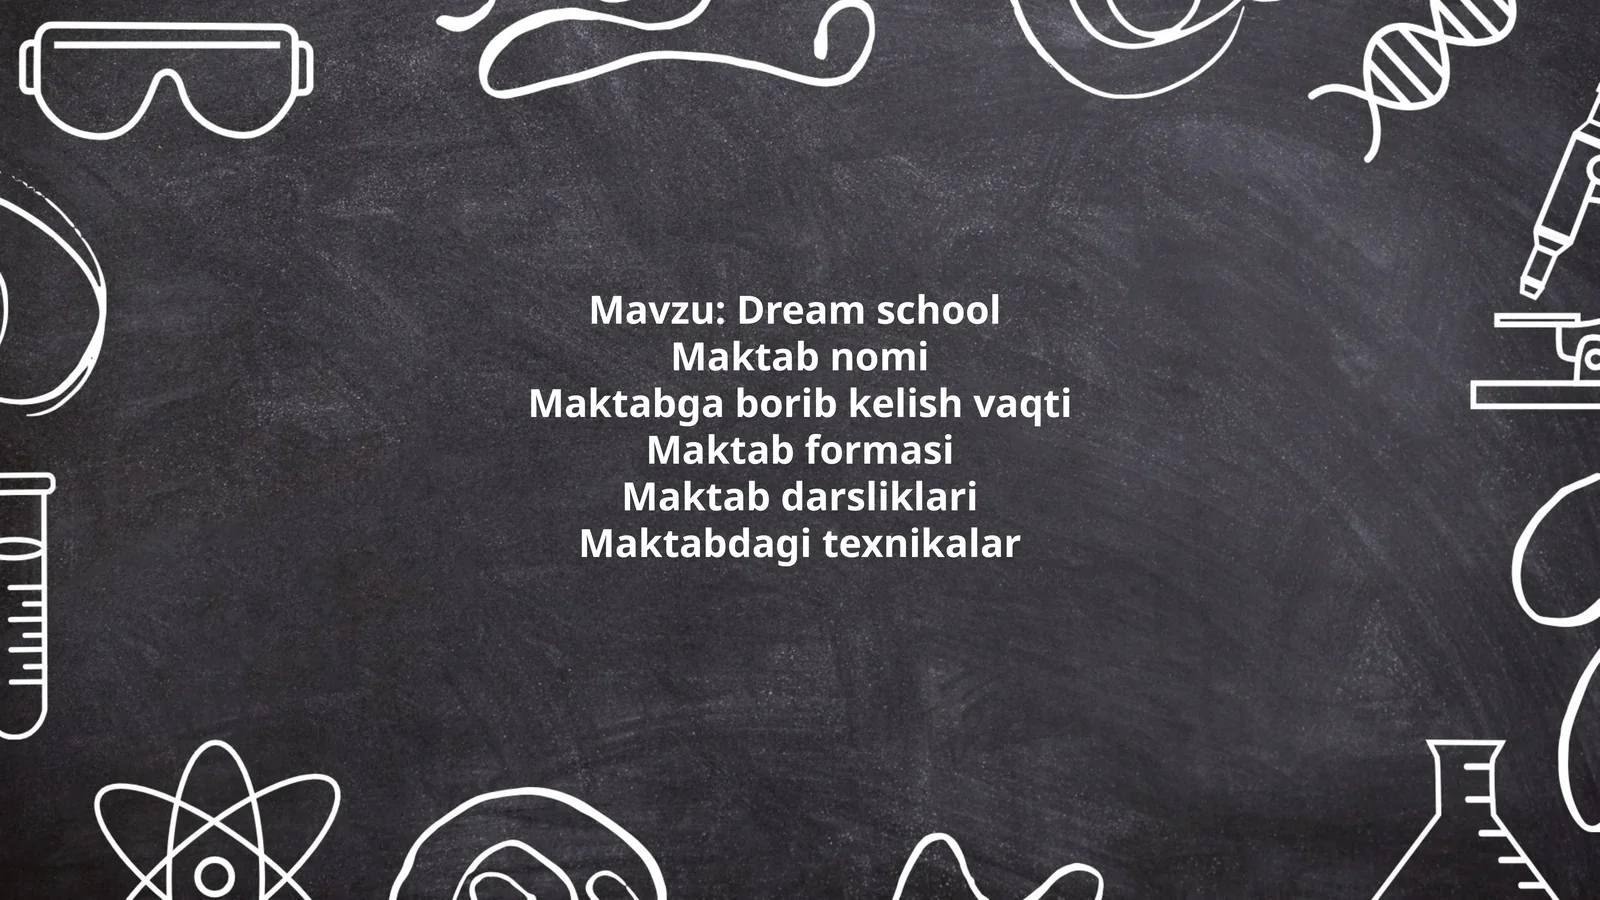 Mavzu: Dream school
Maktab nomi
Maktabga borib kelish vaqti
Maktab formasi
Maktab darsliklari
Maktabdagi texnikalar